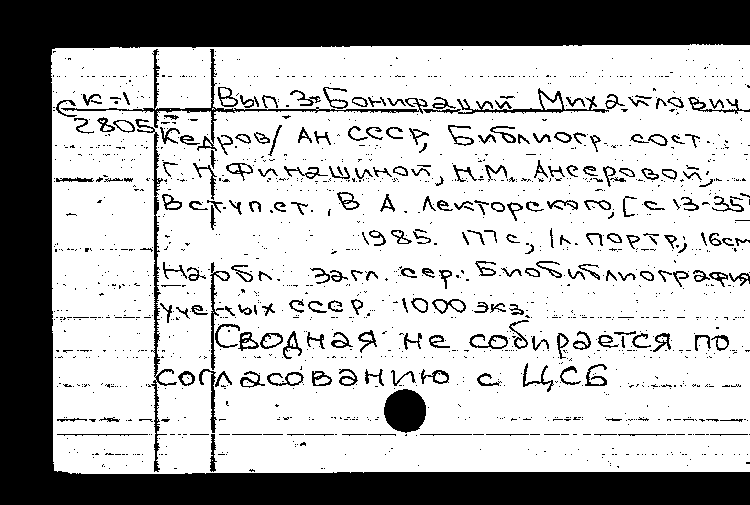 СК-1
2805
Вып. 3: Бонифаций Михайлович
Кедров / АН СССР; Библиогр. сост.
Г. Н. Финашиной, Н.М. Ансеровой;
Вступ.ст., В. А. Лекторского, [с 13-35]
1985. 177с, 1л. портр; 16см
На обл. загл. сер.: Биобиблиография
ученых СССР. 1000 экз.
Сводная не собирается по
согласованию с ЦСБ